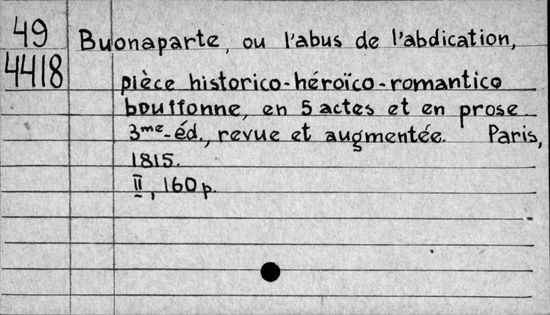 49
4418
Buonaparte, ou l'abus de l'abdication,
pièce historico-héroïco-romantico
bouffonne, en 5 actes et en prose
3me-éd., revue et augmentée. Paris,
1815.
II, 160 p.